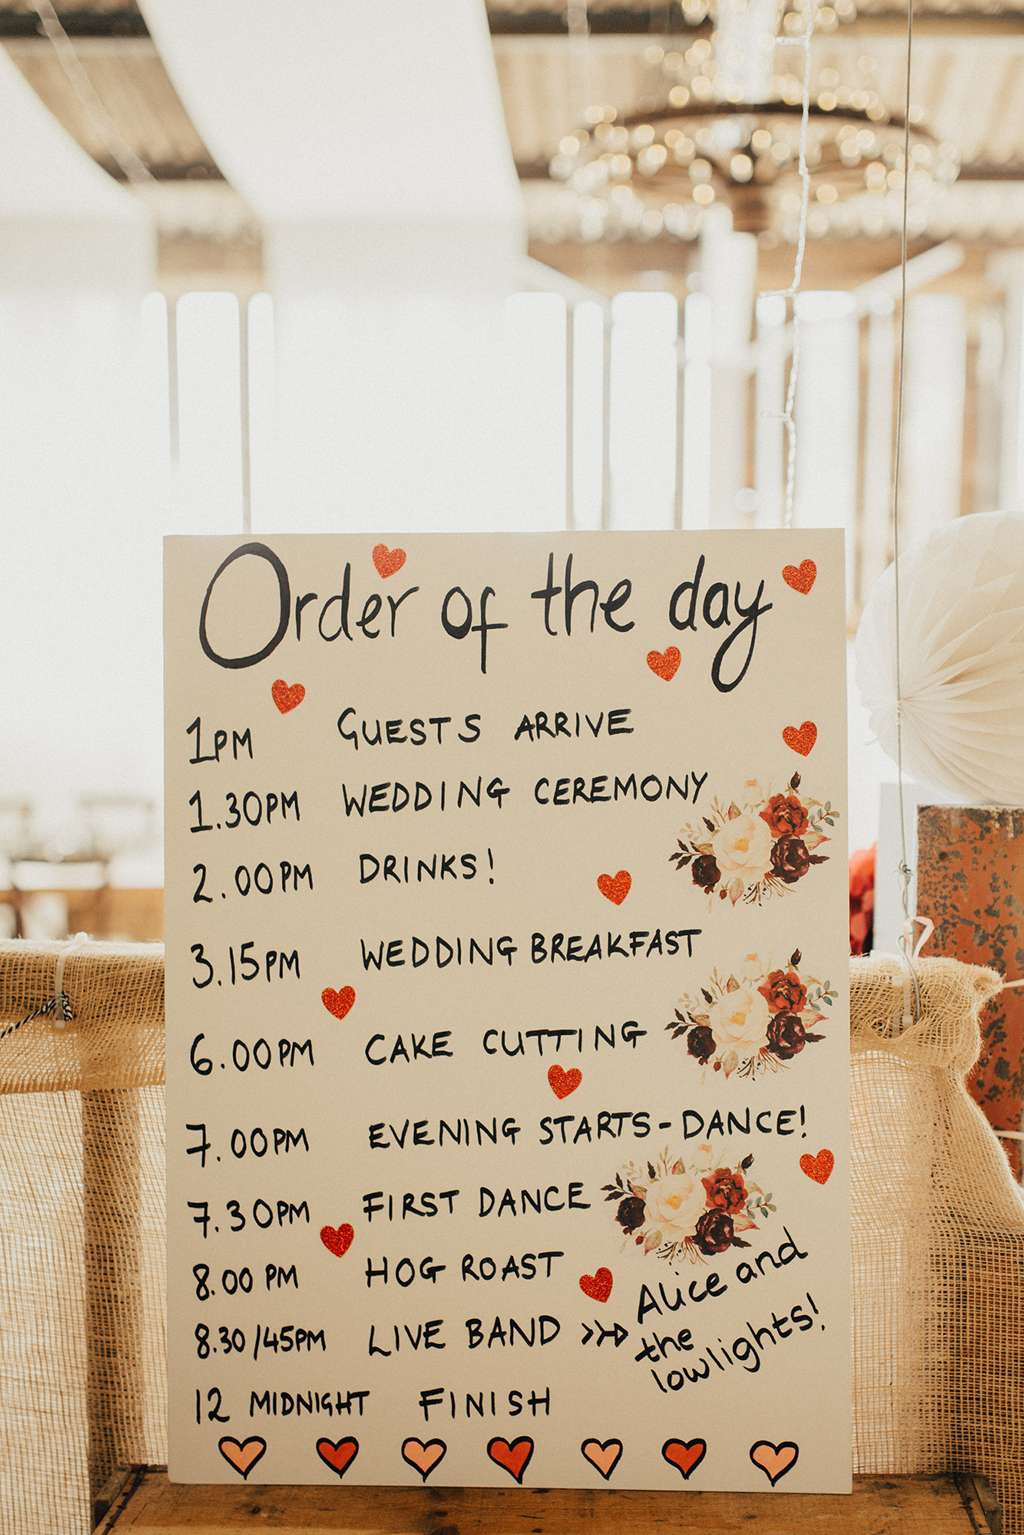 Order of the day
1PM GUESTS ARRIVE
1.30PM WEDDING CEREMONY
2.00PM DRINKS!
3.15PM WEDDING BREAKFAST
6.00PM CAKE CUTTING
7.00PM EVENING STARTS - DANCE!
7.30PM FIRST DANCE
8.00PM HOG ROAST
8.30/45PM LIVE BAND >>> Alice and
the
lowlights!
12 MIDNIGHT FINISH